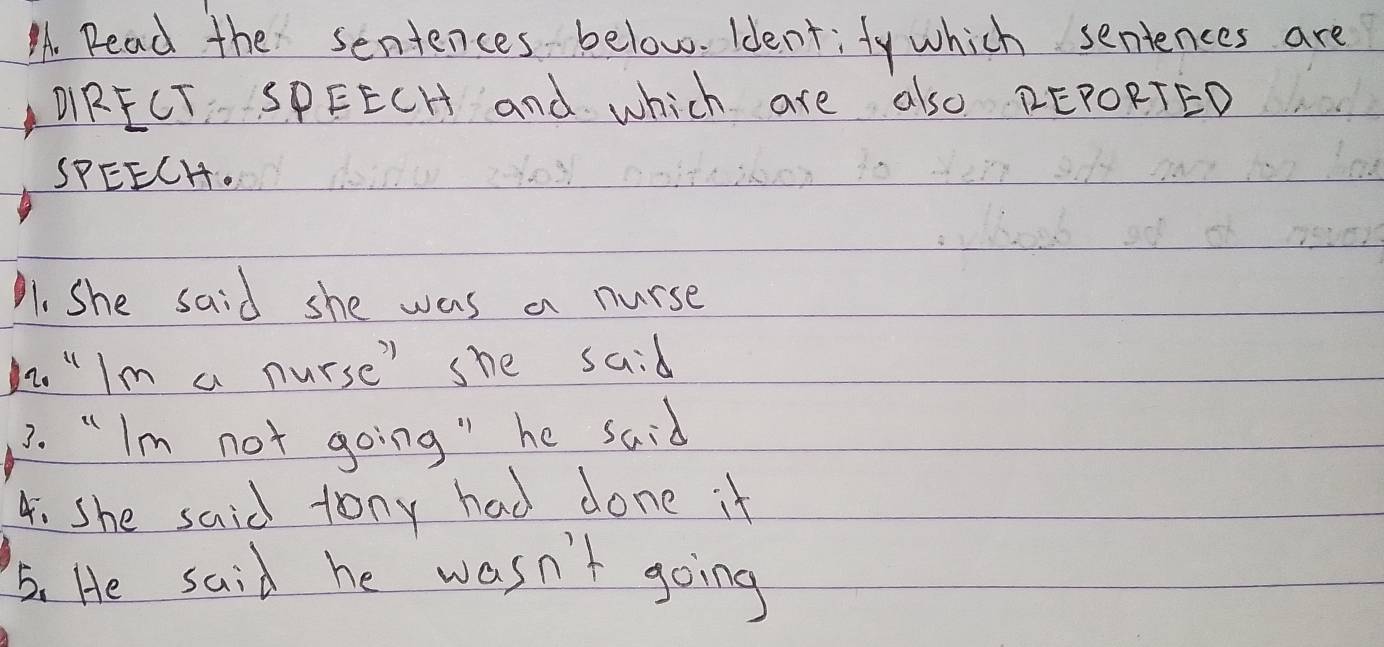 A. Read the sentences below. Identify which sentences are
DIRECT SPEECH and which are also REPORTED
SPEECH.
1. She said she was a nurse
2. "Im a nurse" she said
3. "Im not going" he said
4. She said tony had done it
5. He said he wasn't going